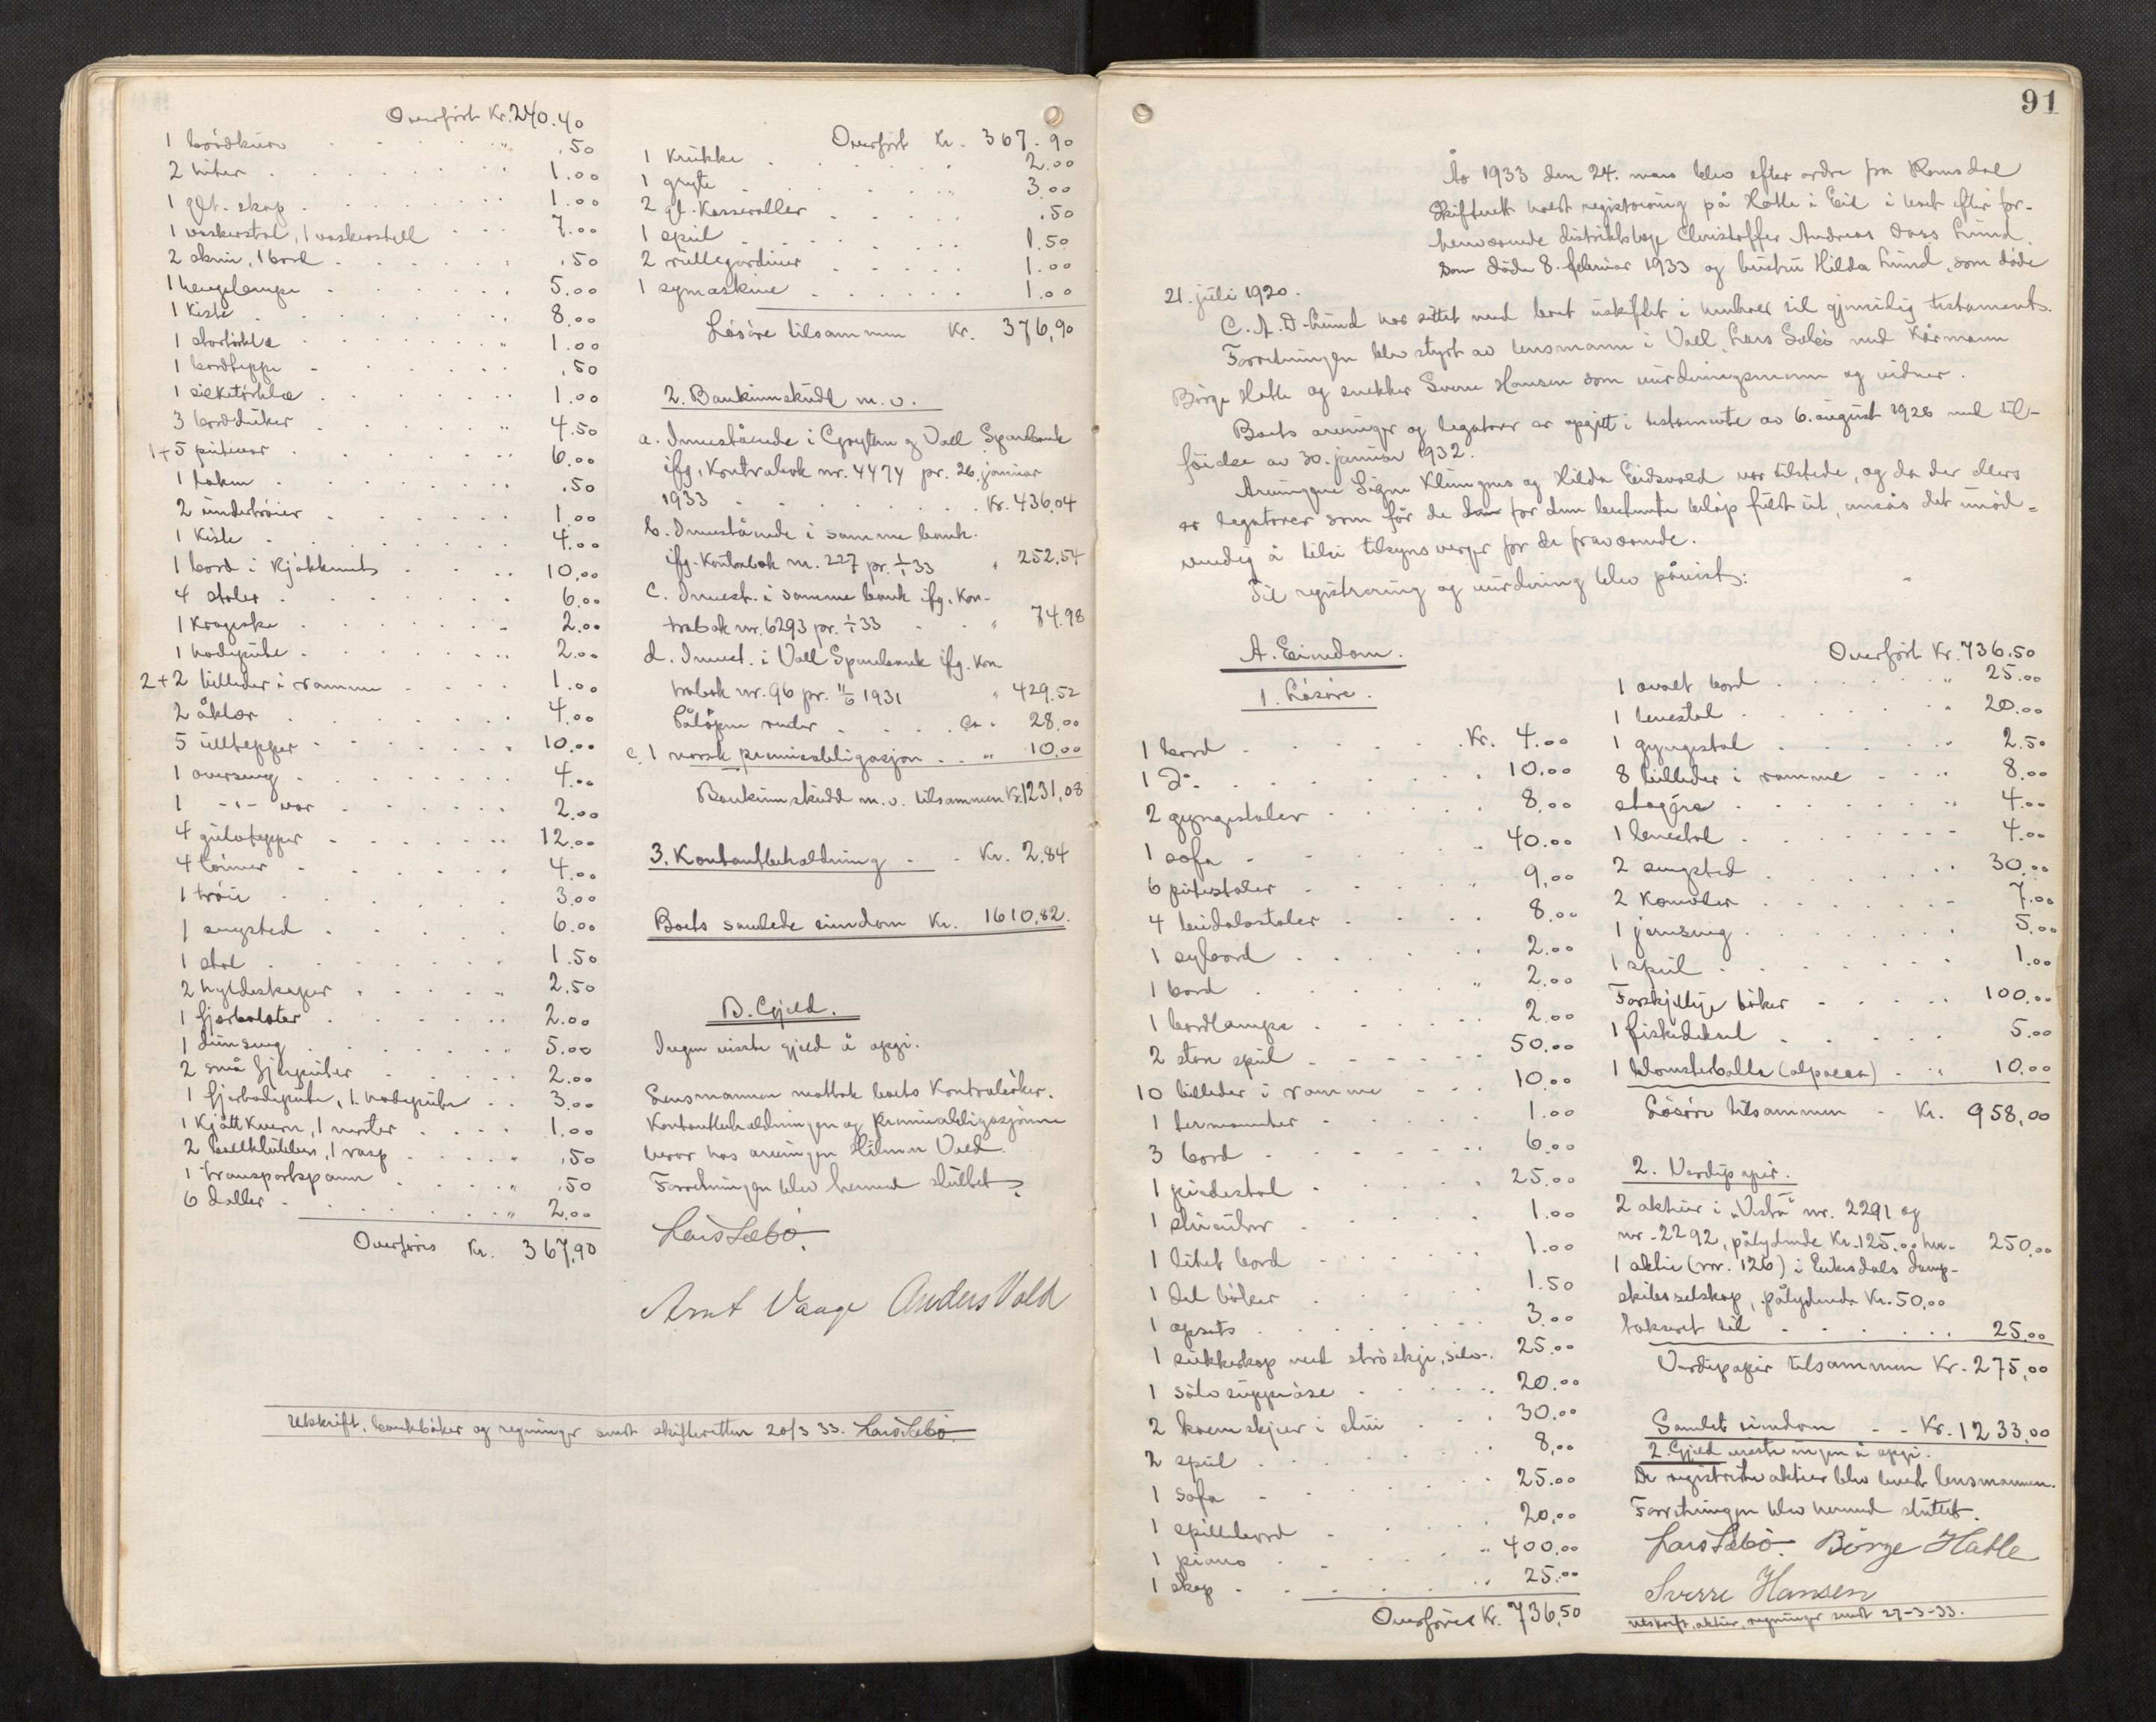 Overført Kr. 240.40
1 brødkurv . . . . " .50
2 huer . . . . . . 1.00
1 glt. skap . . . . . 1.00
1 vaskerstol, 1 vaskerstell . . . 7.00
2 skrin, 1 bord . . . . .50
1 hengelampe . . . . 5.00
1 kiste . . . . . 8.00
1 stortørklæ . . . . 1.00
1 bordteppe . . . . .50
1 silketørklæ . . . . 1.00
3 bordduker . . . . " 4.50
1+5 putevar . . . . " 6.00
1 laken . . . . .50
2 undertrøier . . . . 1.00
1 Kiste . . . . 4.00
1 bord i kjøkkenet . . . . 10.00
4 stoler . . . . 6.00
1 Krageske . . . . 2.00
1 hodepute . . . . 2.00
2+2 billeder i ramme . . . . 1.00
2 åklær . . . . 4.00
5 ullteppper . . . . " 10.00
1 overseng . . . . 4.00
1 -"- var . . . . 2.00
4 gulvtepper . . . . 12.00
4 tønner . . . . 4.00
1 trøie . . . . 3.00
1 sengsted . . . . 6.00
1 stol . . . . 1.50
2 hyldeskaper . . . . 2.50
1 fjærbolster . . . . 2.00
1 dunseng . . . . " 5.00
2 små fjærputer . . . . 2.00
1 fjærhodepute, 1 hodepute . . 3.00
1 kjøttkvern, 1 morter . . . . 1.00
2 , 1 rasp . . . . " .50
1 transportspann . . . . " .50
6 daller . . . . " 2.00
Overføres Kr. 367,90
Overført Kr. 367.90
1 Krukke . . . . 2.00
1 gryte . . . . " 3.00
2 gl. Kasseroller . . . . .50
1 speil . . . . 1.50
2 rullegardiner . . . . 1.00
1 symaskine . . . . 1.00
Løsøre tilsammen Kr. 376,90
2. Bankinnskudd m.v.
a. Innestående i Grytten og Voll Sparebank
ifg. Kontrabok nr. 4474 pr. 26. januar
1933 . . . . Kr. 436,04
b. Innestående i samme bank
ifg. Kontrabok nr. 227 pr. 1/1 33 " 252.54
c. Innest. i samme bank ifg. Kon-
trabok nr. 6293 pr. 1/1 33 . . " 74.98
d. Innest. i Voll Sparebank ifg. Kon
trabok nr. 96 pr. 11/6 1931 " 429.52
Påløpne renter . . . . ca " 28.00
e. 1 norsk premieobligasjon . . " 10.00
Bankinnskudd m.v. tilsammen Kr. 1231,08
3. Kontantbeholdning - - Kr. 2.84
Boets samlede eiendom Kr. 1610,82.
B. Gjeld.
Ingen visste gjeld å opgi.
Lensmannen mottok boets Kontrabøker.
Kontantbeholdningen og premieobligasjonen
beror hos arvingen Hilmar Vold.
Forretningen blev hermed sluttet.
Lars Sæbø.
Arnt Vaage Anders Vold
Utskrift, bankbøker og regninger sendt skifteretten 20/3 33. Lars Sæbø.
91
År 1933 den 24. mars blev efter ordre fra Romsdal
Skifterett holdt registrering på Hatle i Eid i boet efter for-
henværende distriktslæge Christoffer Andreas Dass Lund,
som døde 8. februar 1933 og hustru Hilda Lund, som døde
21. juli 1920.
C. A. D. Lund har sittet med boet uskiftet i henhold til gjensidig testament.
Forretningen blev styrt av lensmann i Voll, Lars Sæbø med Kårmann
Børge Hatle og snekker Sverre Hansen som vurderingsmenn og vidner.
Boets arvinger og legatarer er opgitt i testamente av 6. august 1926 med til-
føielse av 30. januar 1932.
Arvingene Signe Klungnes og Hilda Eidsvold var tilstede, og da der ellers
er legatarer som får de dem for dem bestemte beløp fullt ut, ansås det unød-
vendig å tilsi tilsynsverger for de fraværende.
Til registrering og vurdering blev påvist:
A. Eiendom.
1. Løsøre.
1 bord . . . . Kr. 4.00
1 Do. . . . . 10.00
2 gyngestoler . . . . 8.00
1 sofa . . . . 40.00
6 pinnestoler . . . . 9,00
4 lindalsstoler . . . . 8.00
1 sybord . . . . 2.00
1 bord . . . . " 2.00
1 bordlampe . . . . 2.00
2 store speil . . . . 50.00
10 billeder i ramme . . . 10.00
1 termometer . . . . 1.00
3 bord . . . . 6.00
1 piedestal . . . . 25.00
1 skrivetøi . . . . 1.00
1 litet bord . . . . 1.00
1 del bøker . . . . 1.50
1 opsats . . . . 3.00
1 sukkerkop med strøskje, sølv-. 25.00
1 sølv suppeøse . . . . 20.00
2 kremskjeer i etui . . . 30.00
2 speil . . . . 8,00
1 sofa . . . . 25.00
1 spillebord . . . . 20,00
1 piano . . . . " 400,00
1 skap . . . . " 25.00
Overføres Kr. 736,50
Overført Kr. 736.50
1 ovalt bord . . . . " 25.00
1 lenestol . . . . " 20.00
1 gyngestol . . . . 2.50
8 billeder i ramme . . . . 8.00
etagére . . . . " 4.00
1 lenestol . . . . 4.00
2 sengsted . . . . 30.00
2 Komoder . . . . 7.00
1 jernseng . . . . 5.00
1 speil . . . . 1.00
Forskjellige bøker . . . . 100.00
1 fiskedeksel . . . . 5.00
1 blomsterbolle (alpacca) . . " 10.00
Løsøre tilsammen - Kr. 958,00
2. Verdipapir.
2 aktier i "Vesta" nr. 2291 og
nr. 2292, pålydende Kr. 125.00 hver. 250.00
1 aktie (nr. 126) i Eikisdals damp-
skibsselskap, pålydende Kr. 50,00
taksert til . . . . 25.00
Verdipapir tilsammen Kr. 275,00
Samlet eiendom - - Kr. 1233,00
2. Gjeld visste ingen å opgi.
De registrerte aktier blev levert lensmannen.
Forretningen blev hermed sluttet.
Lars Sæbø. Børge Hatle
Sverre Hansen
Utskrift, aktier, regninger sendt 27-3-33.